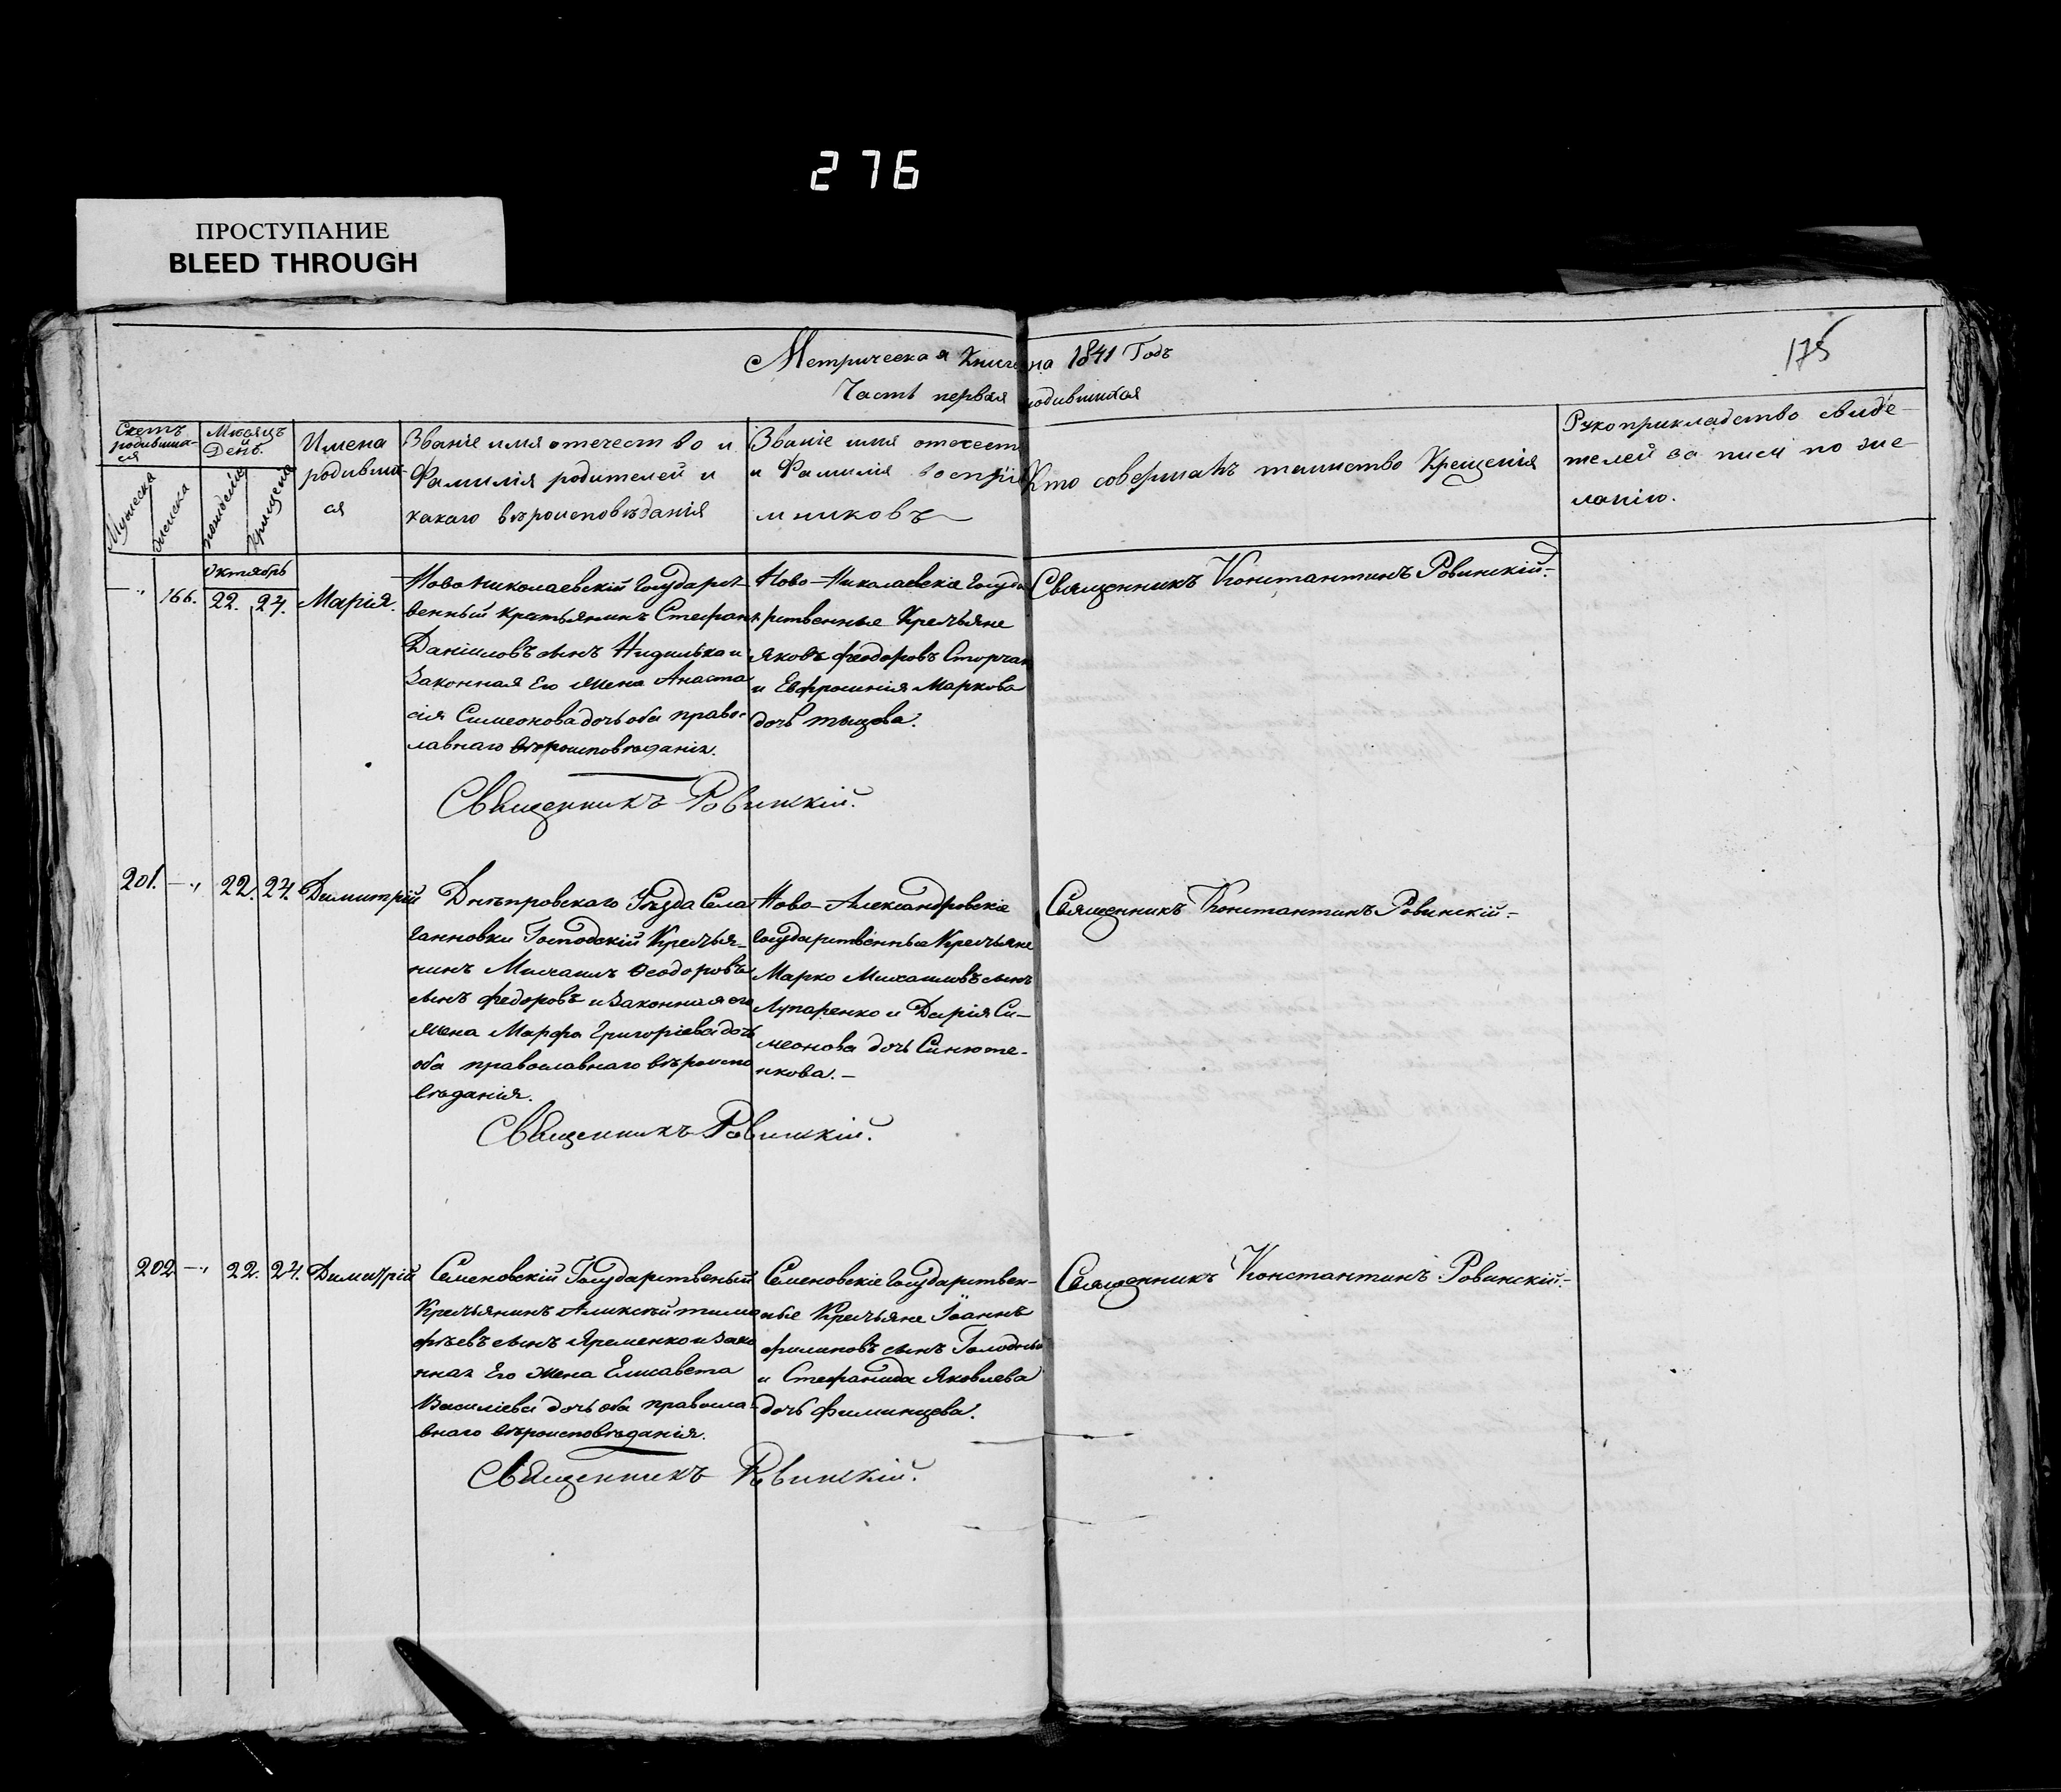 276
ПРОСТУПАНИЕ
BLEED THROUGH
175
Метрическая Книга на 1841 Годъ
Часть первая родившихся
Счетъ родившихся
Мужеска
женска
Мѣсяцъ и День
рожденія
крещенія
Имена родившихся
Званіе имя отечество и
Фамилія родителей и
какаго вѣроисповѣданія
Званіе имя отечест
и Фамилія воспріе
мниковъ
Кто совершалъ таинство Крещенія
Рукоприкладство свиде-
телей за писи по же-
ланію.
Октябрь
166. 22. 27. Марія.
Ново Николаевскій Государст
венный Крестьянинъ Стефанъ
Даніиловъ сынъ Нидилька и
Законная Его Жена Анаста
сія Симеонова дочь оба право-
лавнаго вѣроисповѣданія.
Ново-Николаевскіе Госуда
рственные Крестьяне
Яковъ Феодоровъ Сторчак
и Евфросинія Маркова
дочь
Священникъ Константинъ Ровинскій.
Священникъ Ровинскій.
201. 22. 27. Димитрій
Днѣпровскаго Уѣзда Села
Ганновки Господскій Крестья-
нинъ Михаилъ Феодоровъ
сынъ Федоровъ и Законная его
Жена Марфа Григоріева дочь
оба православнаго вѣроиспо
вѣданія.
Ново-Александровскіе
Государственные Крестьяне
Марко Михаиловъ сынъ
Лупаренко и Дарія Си-
меонова дочь Синюте-
нкова.-
Священникъ Константинъ Ровинскій.-
Священникъ Ровинскій.
202 22. 27. Димитрій
Семеновскій Государственый
Крестьянинъ Аликсѣй тимо
фѣевъ сынъ Яременко и Зако
нная Его Жена Елисавета
Василіева дочь оба правосла-
внаго вѣроисповѣданія.
Семеновскіе Государствен-
ные Крестьяне Іоаннъ
филиповъ сынъ
и Стефанида Яковлева
дочь
Священникъ Константинъ Ровинскій.-
Священникъ Ровинскій.